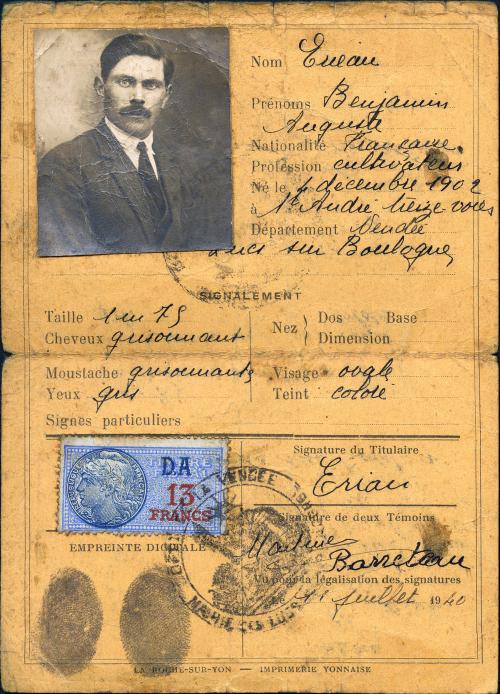 Nom Erieau
Prénoms Benjamin
Auguste
Nationalité Française
Profession cultivateur
Né le 4 décembre 1902
à St André treize voies
Département Vendée
Lucs sur Boulogne
SIGNALEMENT
Taille 1m 75
Cheveux grisonnant
Moustache grisonnante
Yeux gris
Signes particuliers
Nez Dos Base
Dimension
Visage ovale
Teint coloré
D.A
13
FRANCS
EMPREINTE DIGITALE
Signature du Titulaire
Eriau
Signature de deux Témoins
Barreteau
Vu pour la légalisation des signatures
juillet 1940
LA VENDÉE
MAIRIE DES LUCS
LA ROCHE-SUR-YON — IMPRIMERIE YONNAISE